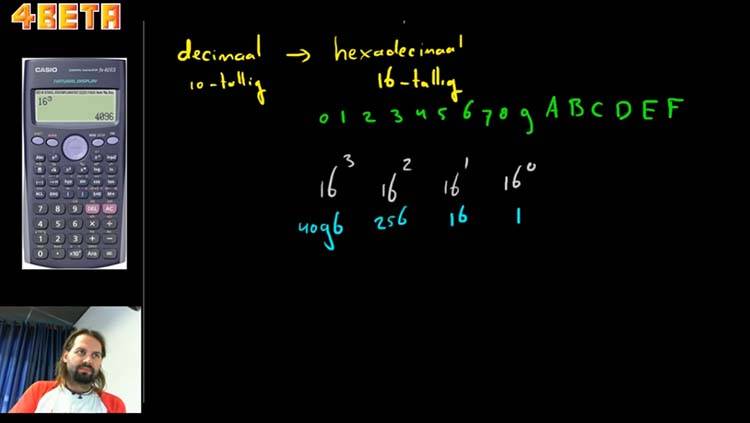 4BETA
CASIO
NATURAL DISPLAY
16³
4096
decimaal → hexadecimaal
10-tallig 16-tallig
0 1 2 3 4 5 6 7 8 9 A B C D E F
16³ 16² 16¹ 16⁰
4096 256 16 1
7 8 9 DEL AC
4 5 6 × ÷
1 2 3 + −
0 . ×10ˣ Ans =